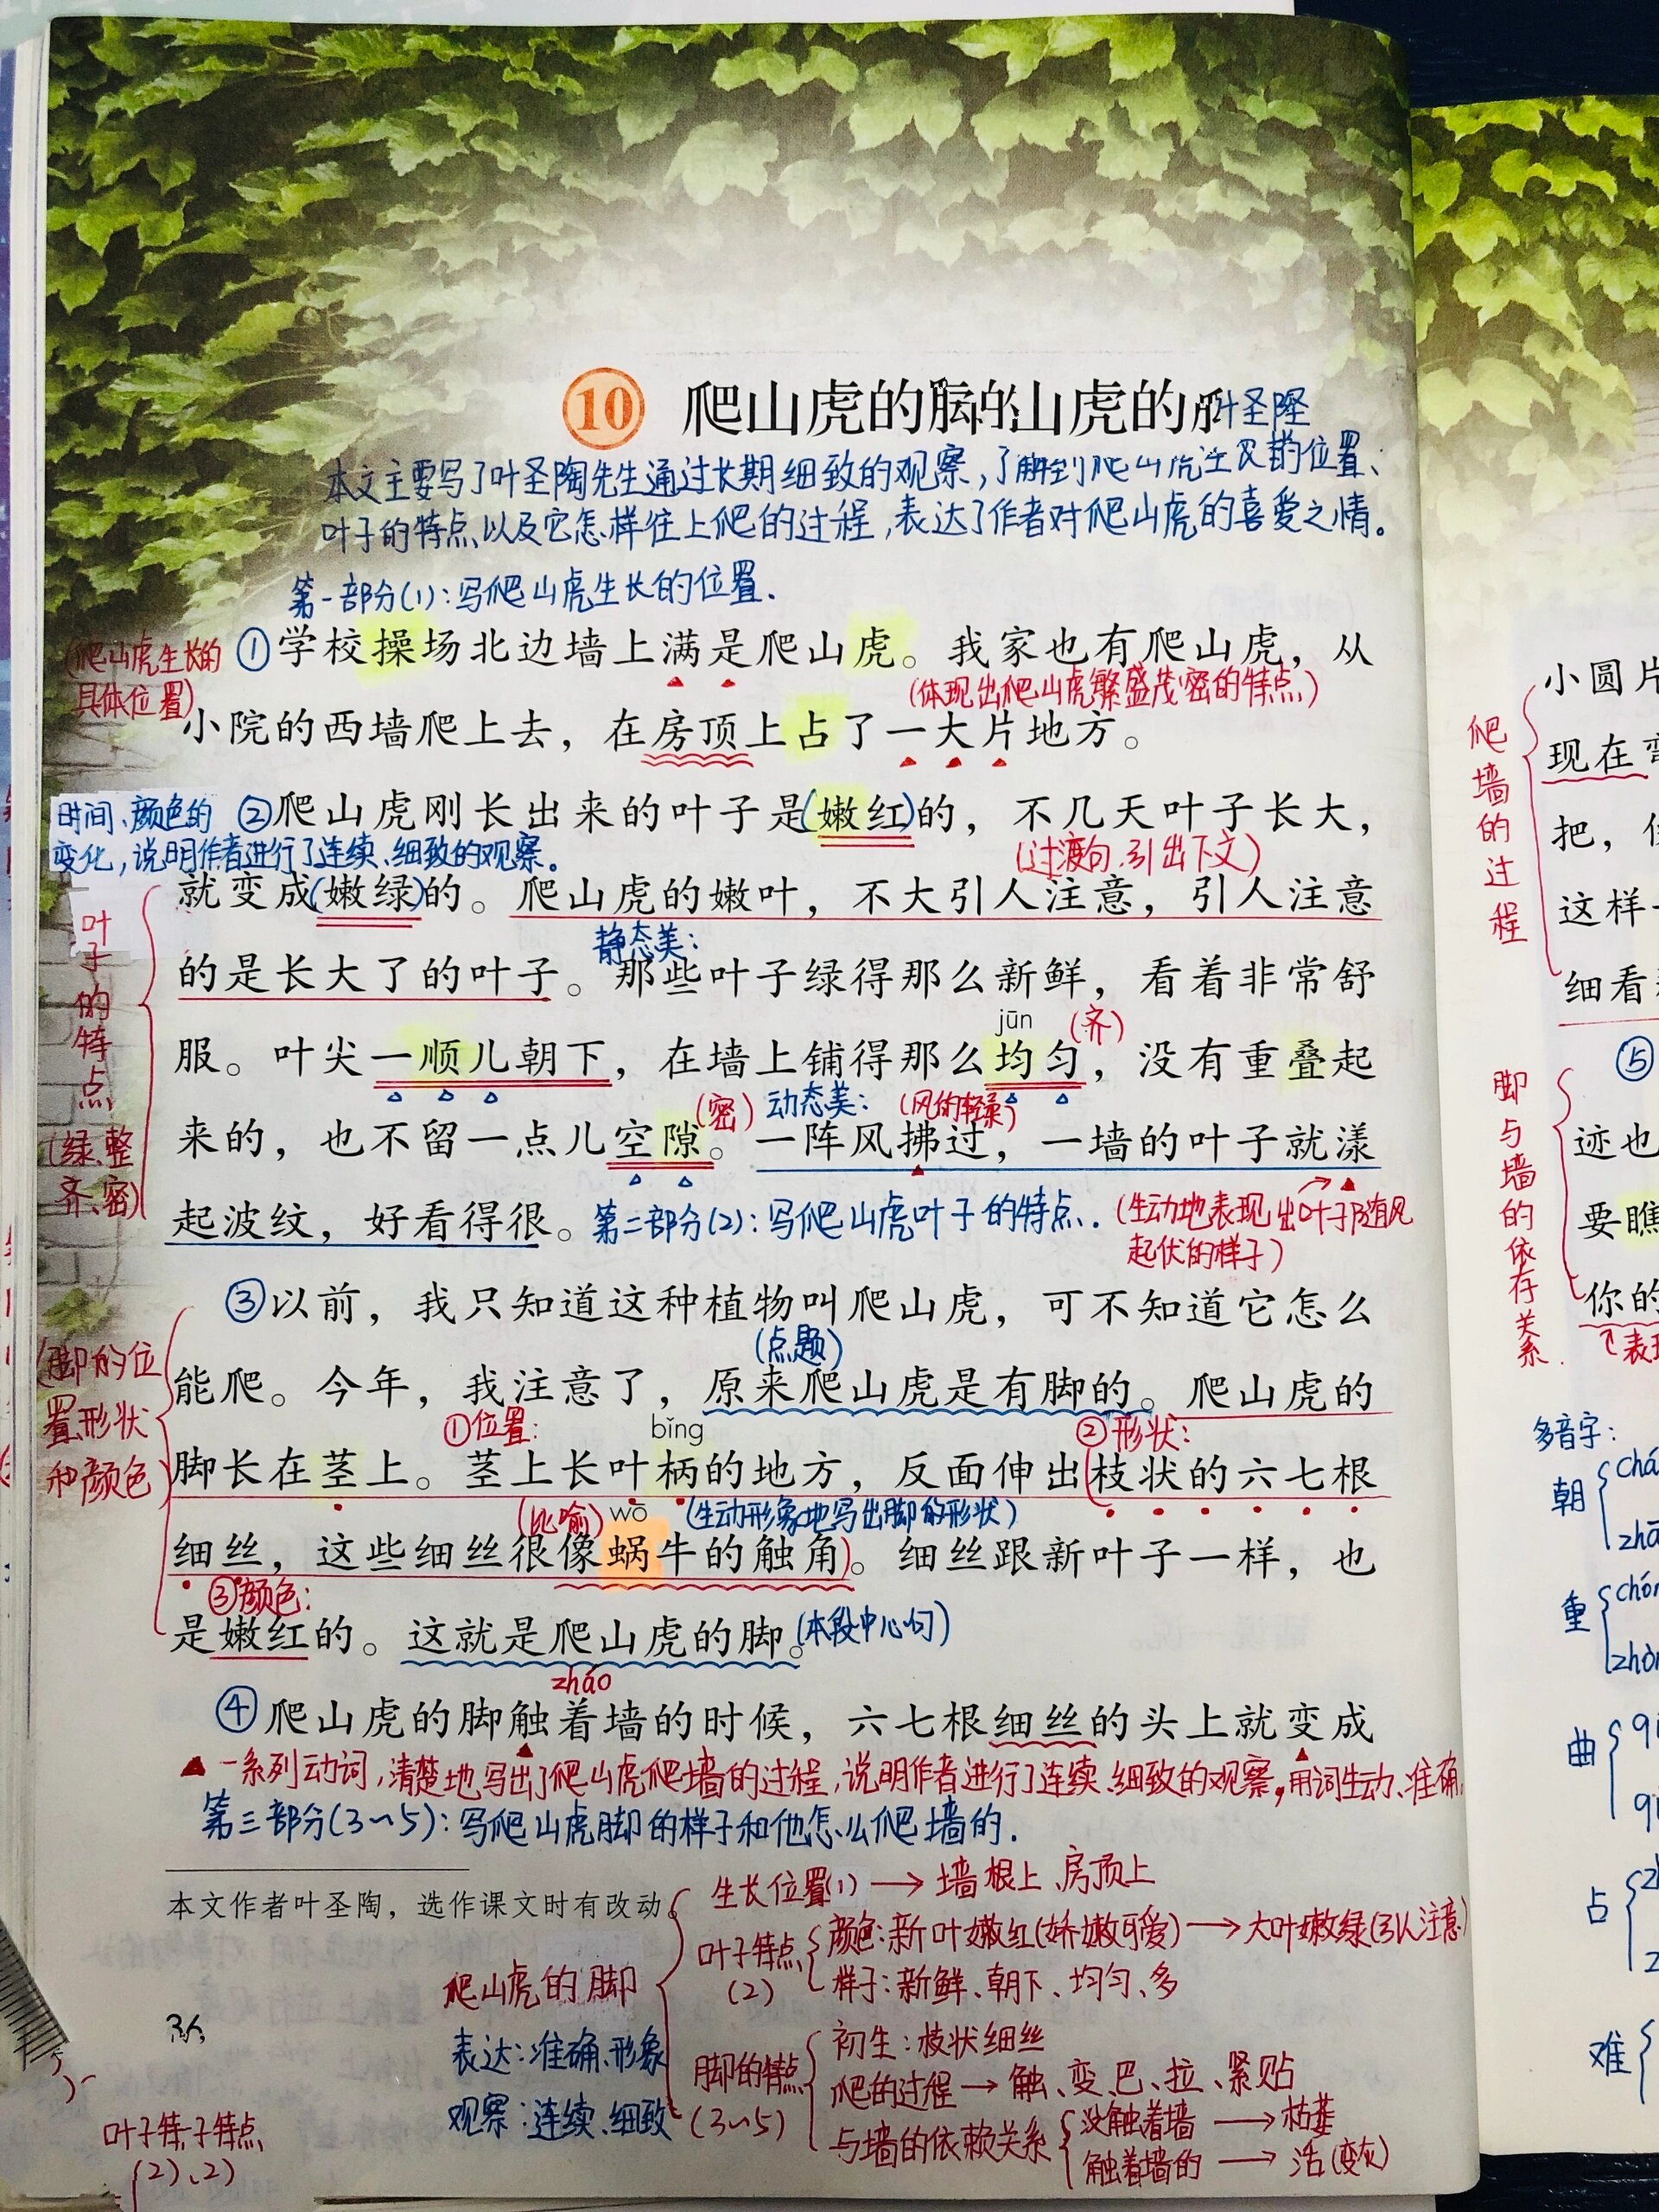 10 爬山虎的脚的山虎的
叶圣陶
本文主要写了叶圣陶先生通过长期细致的观察,了解到爬山虎生长的位置、
叶子的特点以及它怎样往上爬的过程,表达了作者对爬山虎的喜爱之情。
第一部分(1):写爬山虎生长的位置.
(爬山虎生长的
具体位置)
①学校操场北边墙上满是爬山虎。我家也有爬山虎，从
(体现出爬山虎繁盛茂密的特点)
小院的西墙爬上去，在房顶上占了一大片地方。
时间、颜色的
变化,说明作者进行了连续、细致的观察。
②爬山虎刚长出来的叶子是(嫩红)的，不几天叶子长大，
(过渡句,引出下文)
就变成(嫩绿)的。爬山虎的嫩叶，不大引人注意，引人注意
静态美:
的是长大了的叶子。那些叶子绿得那么新鲜，看着非常舒
jūn (齐)
服。叶尖一顺儿朝下，在墙上铺得那么均匀，没有重叠起
(密) 动态美: (风的轻柔)
来的，也不留一点儿空隙。一阵风拂过，一墙的叶子就漾
起波纹，好看得很。
第二部分(2):写爬山虎叶子的特点.
(生动地表现出叶子随风
起伏的样子)
叶子的特点
(绿、整
齐、密)
③以前，我只知道这种植物叫爬山虎，可不知道它怎么
(点题)
能爬。今年，我注意了，原来爬山虎是有脚的。爬山虎的
①位置: bǐng ②形状:
脚长在茎上。茎上长叶柄的地方，反面伸出(枝状的六七根
(比喻) wō (生动形象地写出脚的形状)
细丝，这些细丝很像蜗牛的触角)。细丝跟新叶子一样，也
③颜色:
是嫩红的。这就是爬山虎的脚。(本段中心句)
(脚的位
置、形状
和颜色
zháo
④爬山虎的脚触着墙的时候，六七根细丝的头上就变成
一系列动词,清楚地写出了爬山虎爬墙的过程,说明作者进行了连续、细致的观察,用词生动、准确
第三部分(3~5):写爬山虎脚的样子和他怎么爬墙的.
本文作者叶圣陶，选作课文时有改动。
爬山虎的脚
表达:准确、形象
观察:连续、细致
生长位置(1) → 墙根上、房顶上
叶子特点
(2)
颜色:新叶嫩红(娇嫩可爱) → 大叶嫩绿(引人注意)
样子:新鲜、朝下、均匀、多
脚的特点
(3~5)
初生:枝状细丝
爬的过程 → 触、变、巴、拉、紧贴
与墙的依赖关系
没触着墙 → 枯萎
触着墙的 → 活(变灰)
叶子特子特点
(2)、2)
爬墙的过程
小圆片
现在
把，
这样
细看
脚与墙的依存关系.
⑤
迹也
要瞧
你的
多音字:
朝
重
曲
占
难